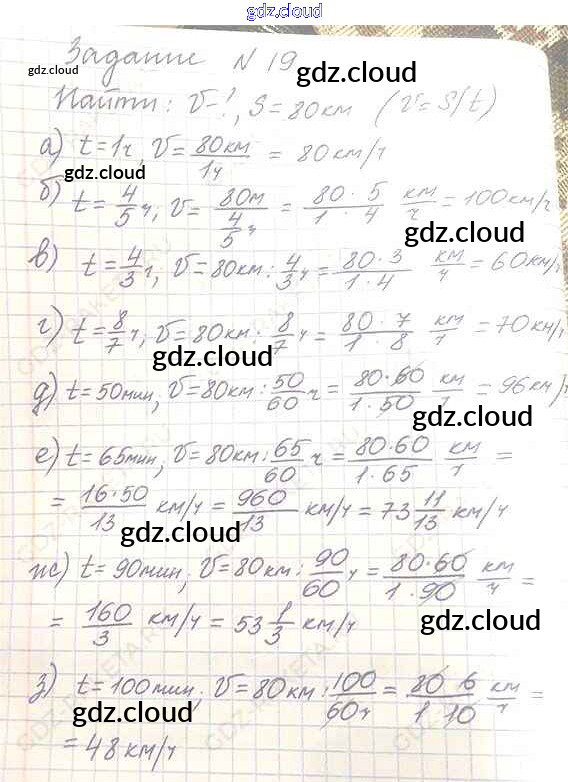 gdz.cloud
Задание N 19
gdz.cloud
gdz.cloud
Найти: V-?, S=80км (V=S/t)
а) t=1ч, V=80км/1ч = 80км/ч
gdz.cloud
б) t=4/5ч, V=80м/(4/5ч) = 80·5/1·4 км/ч = 100км/ч
gdz.cloud
в) t=4/3ч, V=80км:4/3ч = 80·3/1·4 км/ч = 60км/ч
г) t=8/7ч, V=80км:8/7ч = 80·7/1·8 км/ч = 70км/ч
gdz.cloud
д) t=50мин, V=80км:50/60ч = 80·60/1·50 км/ч = 96км/ч
gdz.cloud
е) t=65мин, V=80км:65/60ч = 80·60/1·65 км/ч =
= 16·50/13 км/ч = 960/13 км/ч = 73 11/13 км/ч
gdz.cloud
ж) t=90мин; V=80км:90/60ч = 80·60/1·90 км/ч =
= 160/3 км/ч = 53 1/3 км/ч
gdz.cloud
з) t=100мин; V=80км:100/60ч = 80 6/1 10 км/ч =
gdz.cloud
= 48км/ч